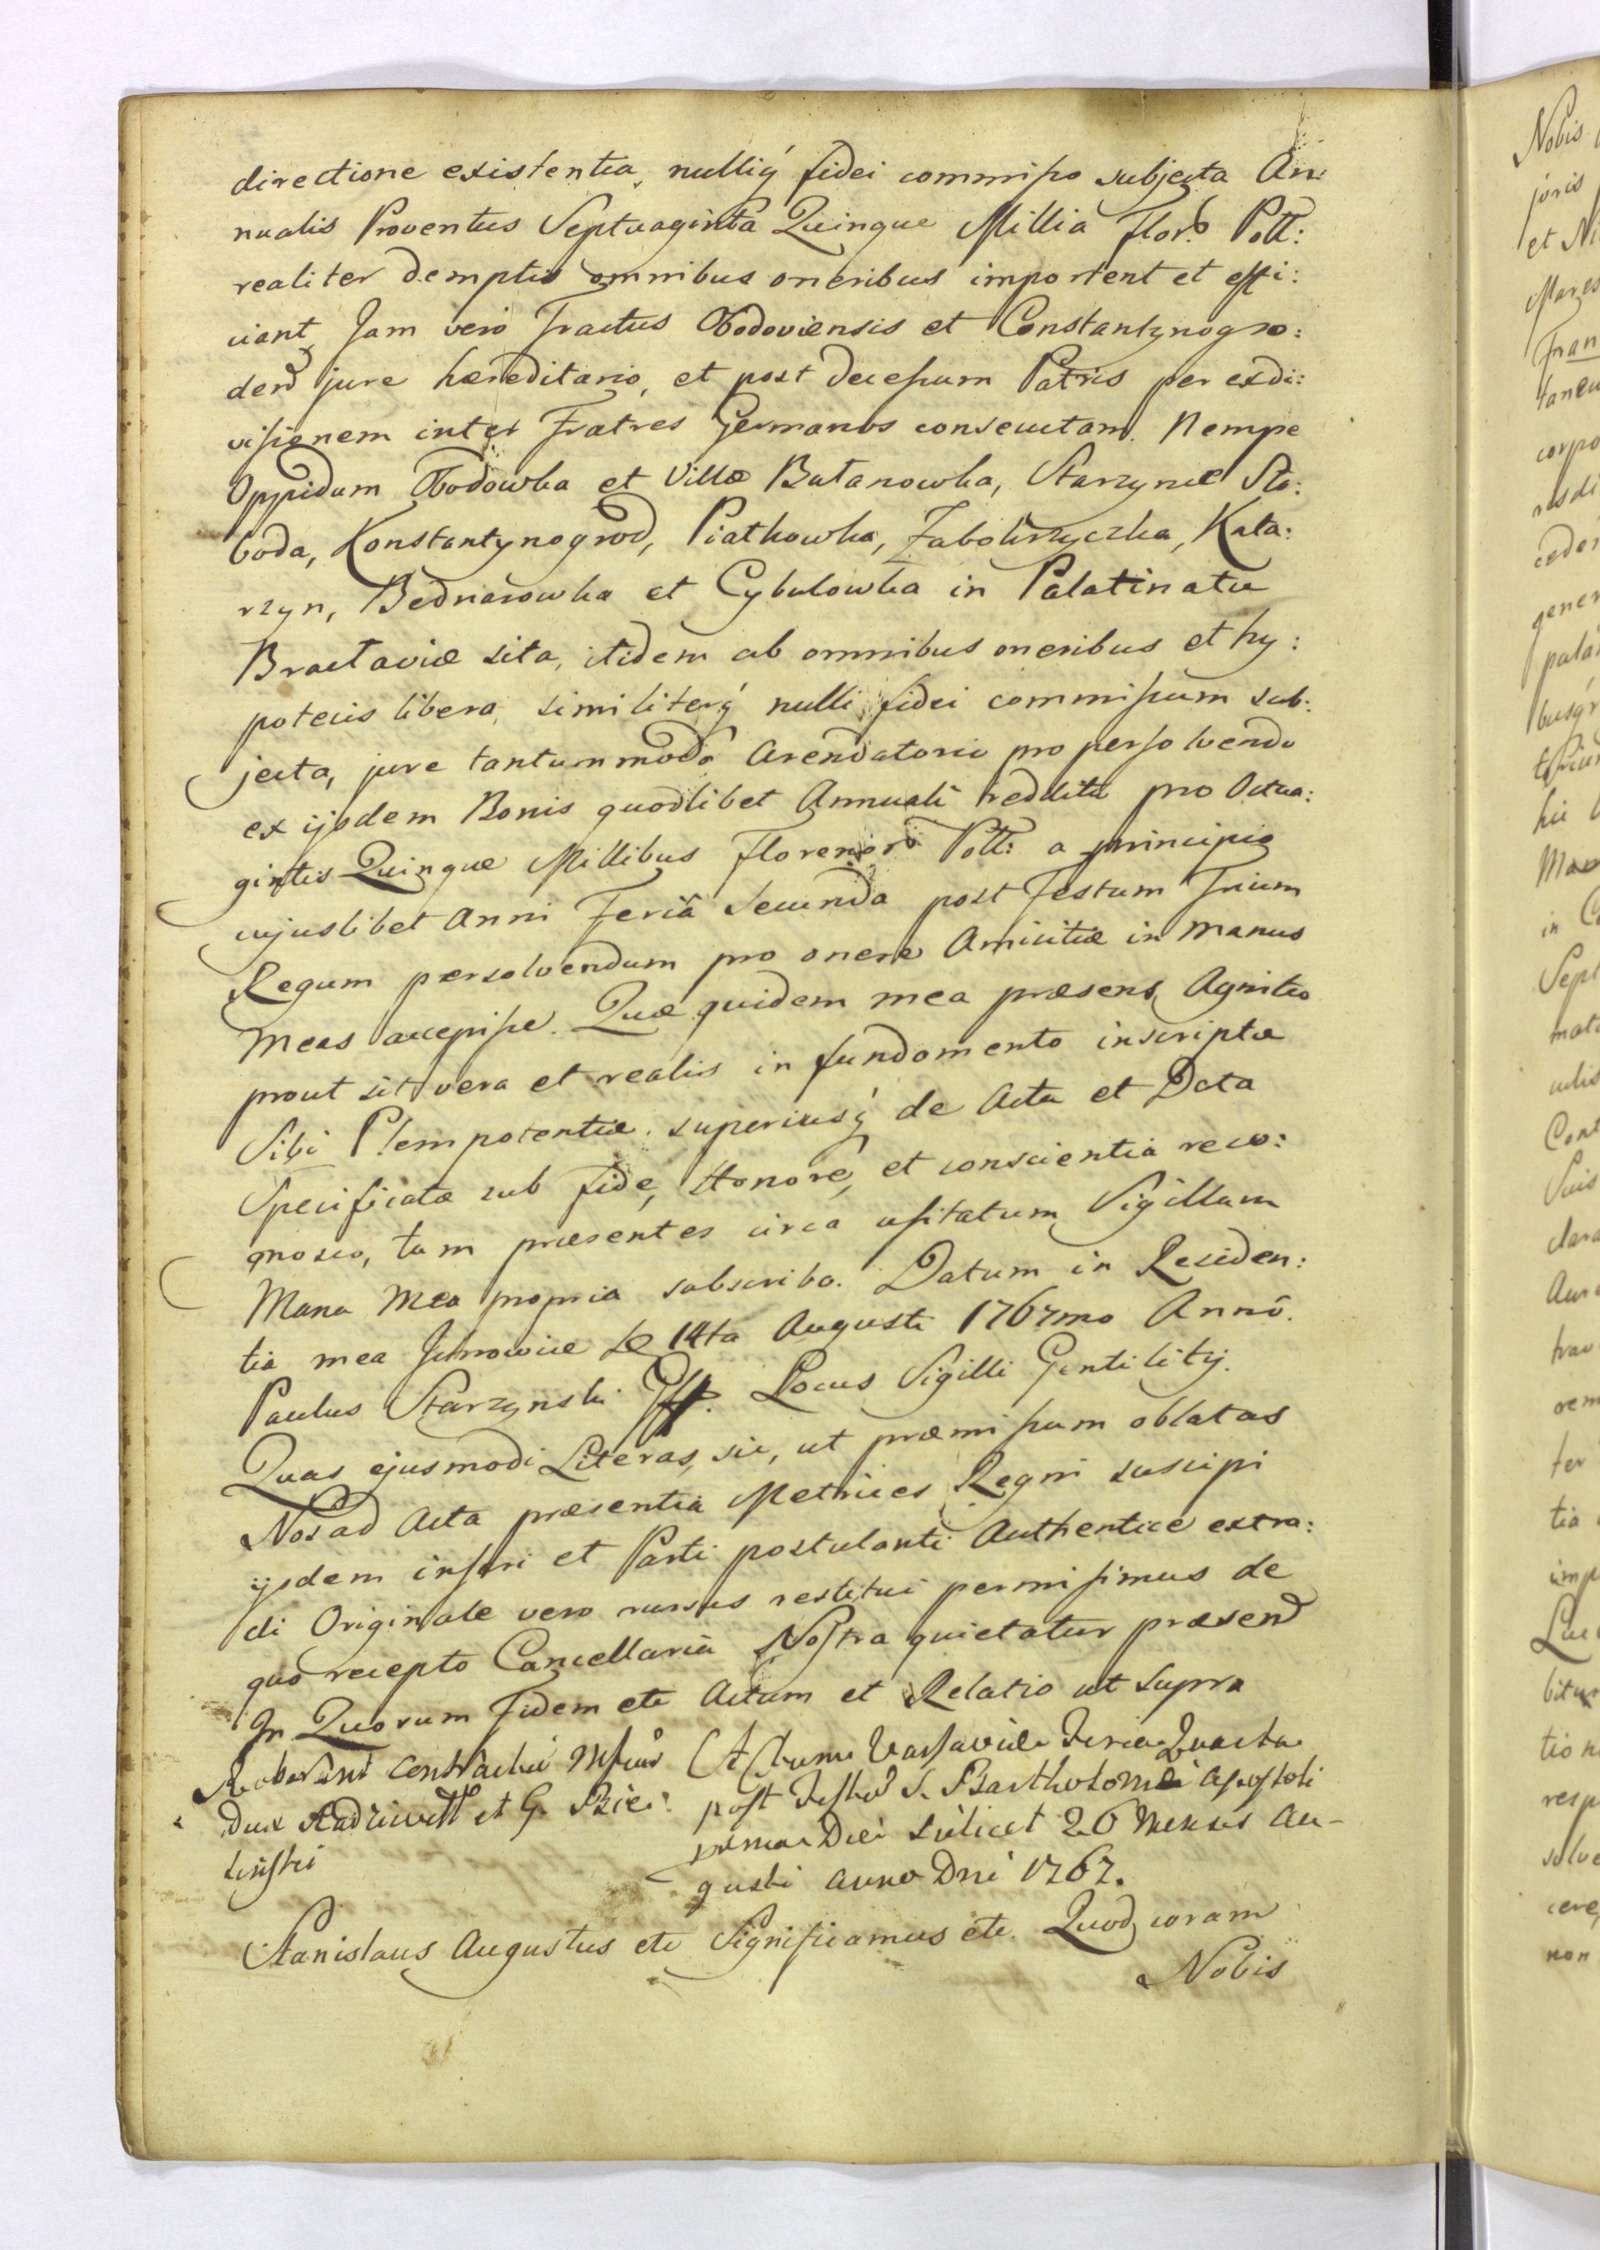 directione existentia, nulliq́ fidei commisso subjecta An:
nualis Proventus Septuaginta Quinque Millia Flor: Poll:
realiter demptis omnibus oneribus importent et effi:
ciant, Jam vero Tractus Obodoviensis et Constantynogro:
den̄ jure hæreditario, et post decessum Patris per exdi:
visionem inter Fratres Germanos consecutam. Nempe
Oppidum Obodowka et Villæ Bałanowka, Starzynæ Sło:
boda, Konstantynogrod, Piatkowka, Zabokrzyczka, Kata:
rzyn, Bednarowka et Cybulowka in Palatinatu
Braclaviæ sita, itidem ab omnibus oneribus et hy:
potecis libera, similiterq́ nulli fidei commissum sub:
jecta, jure tantummodo Arendatorio pro persolvendo
ex ijsdem Bonis quodlibet Annuali redditu pro Octua:
gintis Quinque Millibus Florenor Poll: a principio
cujuslibet Anni Feriâ Secunda post Festum Trium
Regum persolvendum pro onere Amicitiæ in manus
Meas accepisse. Quæ quidem mea præsens Agnitio
prout sit vera et realis in fundamento inscriptæ
Sibi Plenipotentiæ. superiusq́ de Acta et Data
Specificatæ sub fide, Honore, et conscientia reco:
gnosco, tum præsentes circa usitatum Sigillum
Manu Mea propria subscribo. Datum in Residen:
tia mea 14ta Augusti 1767mo Annô.
Paulus Starzynski Locus Sigilli Gentilitij.
Quas ejusmodi Literas, sic, ut præmissum oblatas
Nos ad Acta præsentia Metrices Regni suscipi
ijsdem inseri et Parti postulanti Authentice extra:
di Originale vero rursus restitui permisimus de
quo recepto Cancellaria Nostra quietatur præsen̄
In Quorum Fidem etc Actum et Relatio ut supra
Roborant Contractui
Dux Radziwill et G. Brze:
Actum Varsaviæ Feria Quarta
post Festū S. Bartholomæi Apostoli
Die scilicet 26 Mensis Au-
gusti Anno Dnī 1767.
Stanislaus Augustus etc Significamus etc. Quod coram
Nobis
Nobis
juris
et Ni
Mares
Fran
taneu
corpo
cedere
gener
pala
busq́
hic
in C
Sept
mat
Cont
Suis
clara
Aur
trav
rem
ter
tia
imp
Luc
bitur
tio n
resp
solve
cere
non